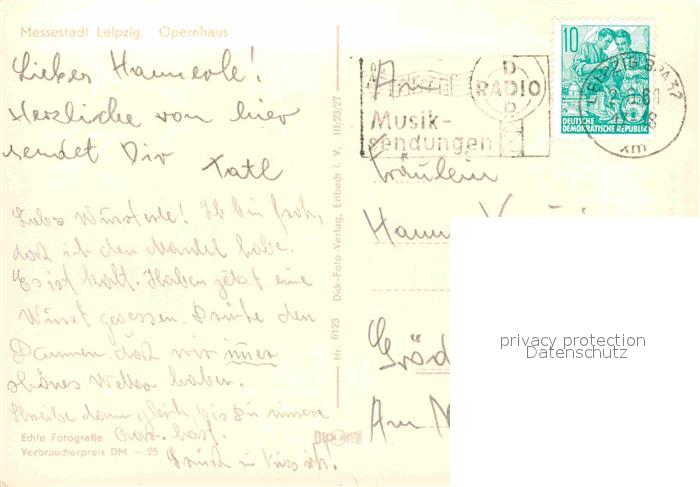 Messestadt Leipzig. Opernhaus
Lieber Hannerle!
Herzliche von hier
sendet Dir Tatl
Liebs Wursterle! Ich bin froh,
daß ich den Mantel habe.
Es ist kalt. Haben jetzt eine
Wurst gegessen. Drücke den
Daumen, daß wir immer
schönes Wetter haben.
Schreibe dann gleich, bis Du unsere
hast.
Echte Fotografie
Verbraucherpreis DM —25
Nr. 6123 Dick-Foto Verlag, Erlbach i. V. III/23/27
RADIO
DDR
Musik-
sendungen
10
DEUTSCHE
DEMOKRATISCHE REPUBLIK
LEIPZIG BPA 32
xm
Fräulein
Am
privacy protection
Datenschutz